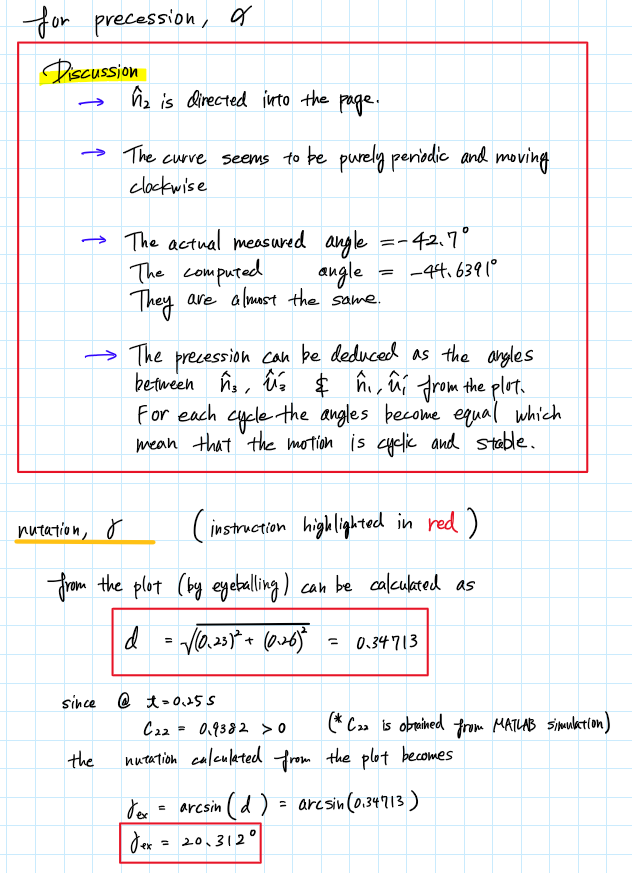 for precession, α
Discussion
→ n̂₂ is directed into the page.
→ The curve seems to be purely periodic and moving
clockwise
→ The actual measured angle = -42.7°
The computed angle = -44.6391°
They are almost the same.
→ The precession can be deduced as the angles
between n̂₃, û₃' & n̂₁, û₁' from the plot.
For each cycle the angles become equal which
mean that the motion is cyclic and stable.
nutation, γ (instruction highlighted in red)
from the plot (by eyeballing) can be calculated as
d = √((0.23)² + (0.26)²) = 0.34713
since @ t=0.25 s
C₂₂ = 0.9382 > 0 (* C₂₂ is obtained from MATLAB simulation)
the nutation calculated from the plot becomes
γₑₓ = arcsin(d) = arcsin(0.34713)
γₑₓ = 20.312°